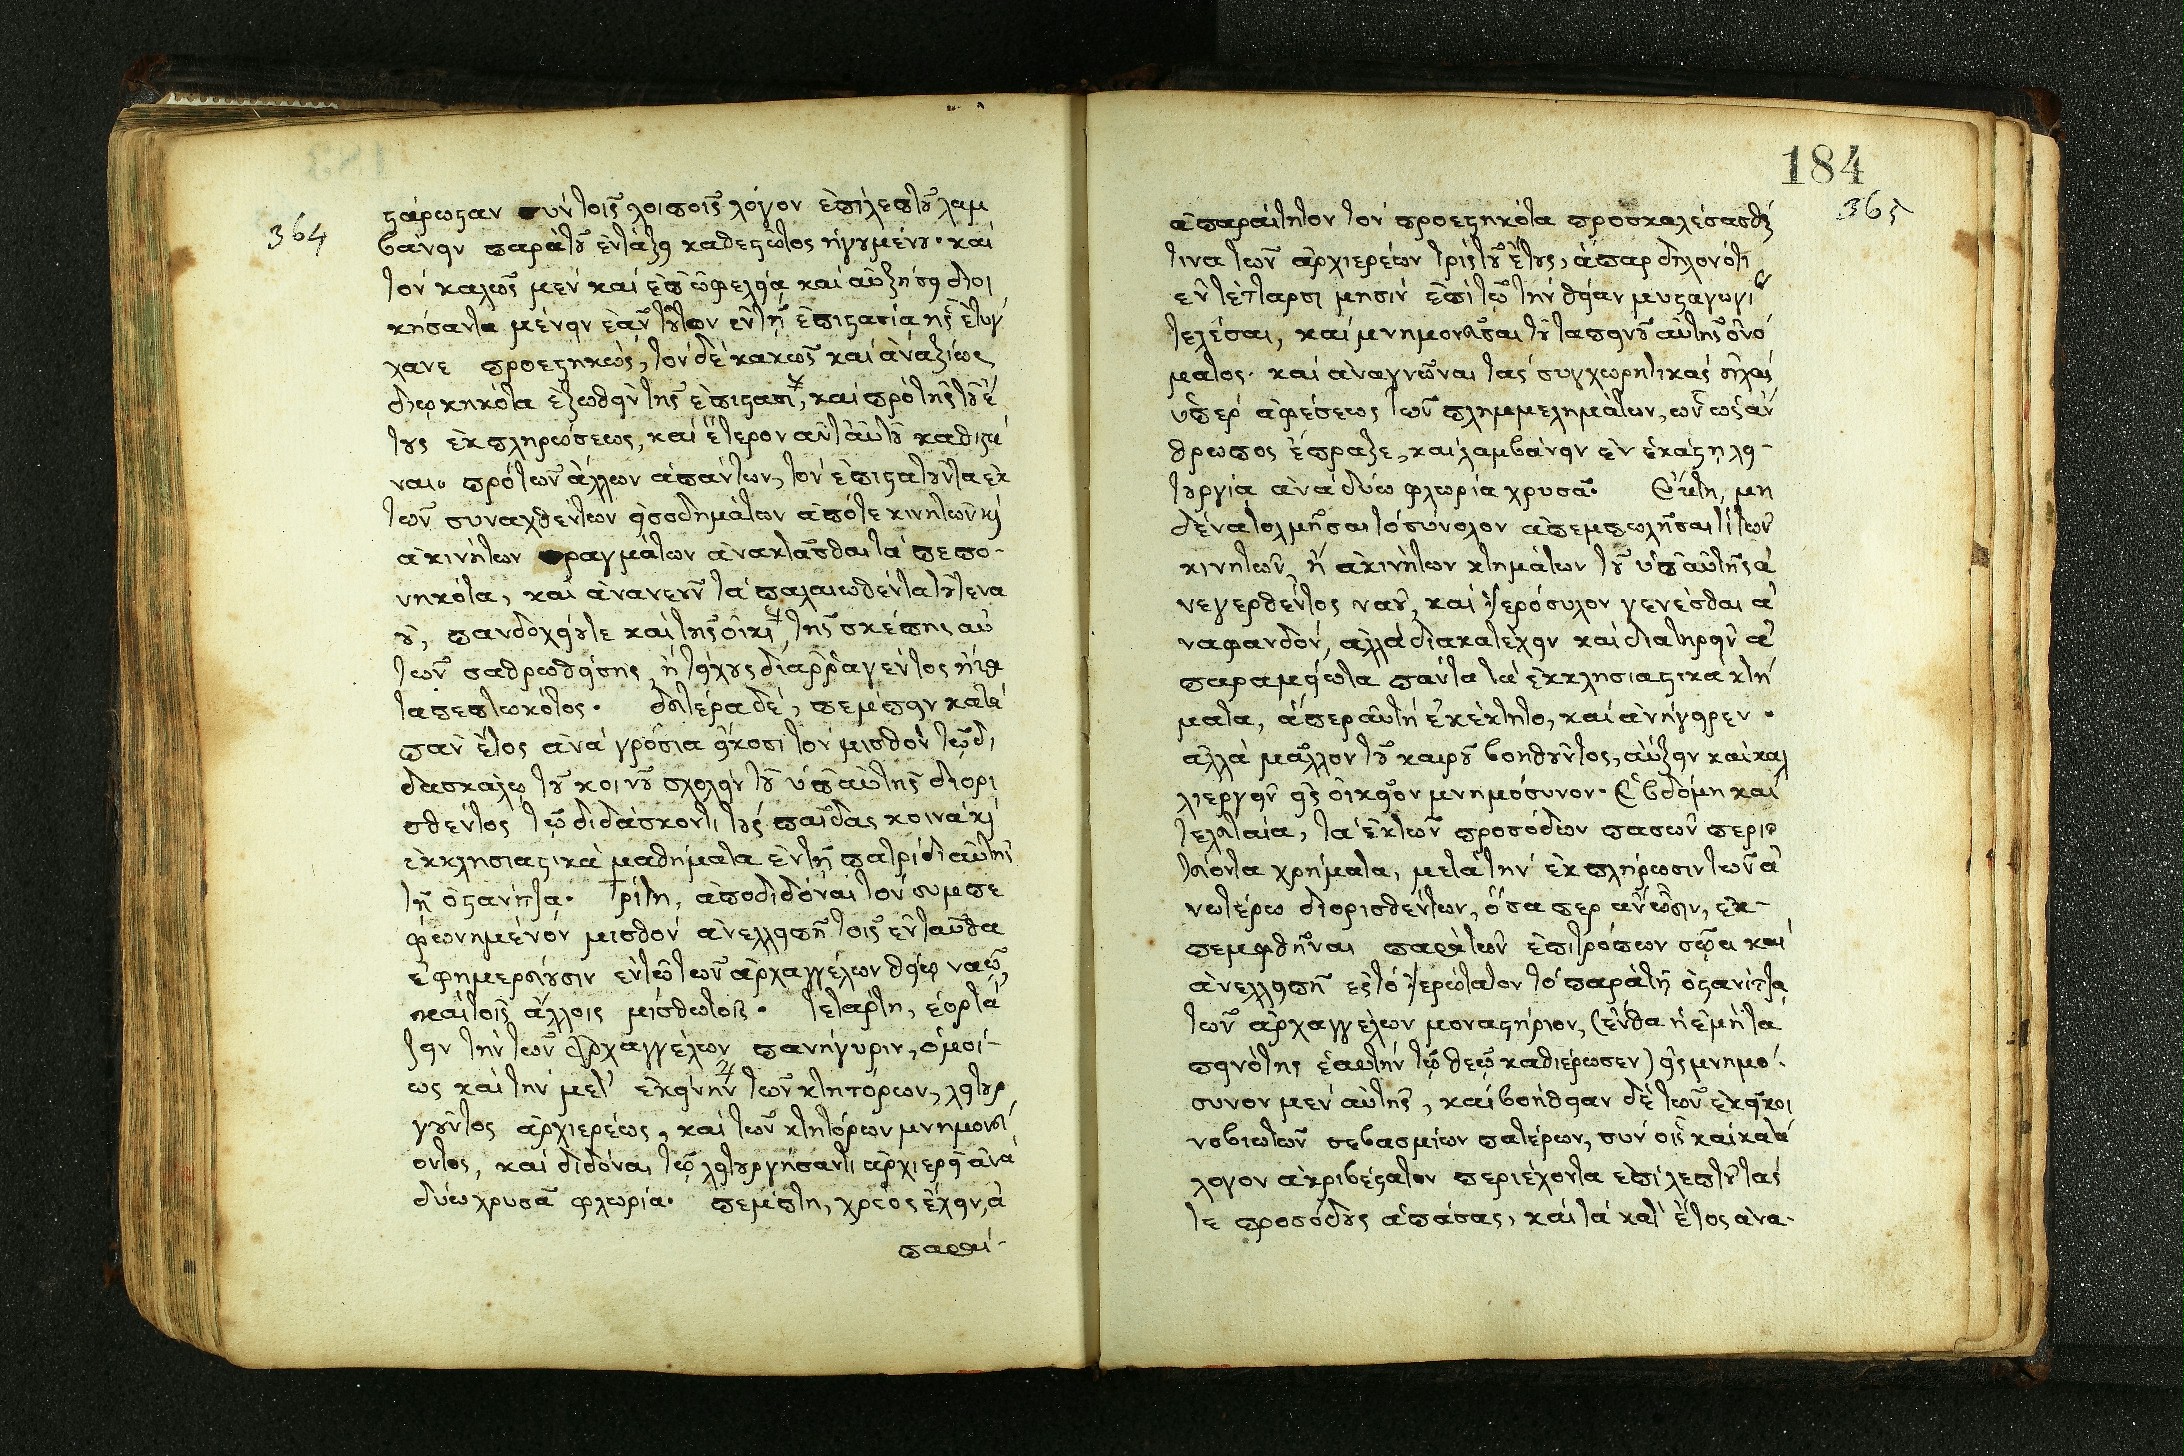 364
σάρωσαν σὺν τοῖς λοιποῖς λόγον ἐπὶ λεπτοῦ λαμ
βάνειν παρὰ τοῦ ἐν τάξει καθεστῶτος ἡγουμένου· καὶ
τὸν καλῶς μὲν καὶ ἐπ' ὠφελείᾳ καὶ αὐξήσει διοι
κήσαντα μένειν ἐᾶν τοῦτον ἐν τῇ ἐπιστασίᾳ ἧς ἐτύγ
χανε προεστηκώς, τὸν δὲ κακῶς καὶ ἀναξίως
διῳκηκότα ἐξωθεῖν τῆς ἐπιστασί, καὶ πρὸ τῆς τοῦ ἔ
τους ἐκπληρώσεως, καὶ ἕτερον ἀντ' αὐτοῦ καθιστά
ναι. πρὸ τῶν ἄλλων ἁπάντων, τὸν ἐπιστατοῦντα ἐκ
τῶν συναχθέντων εἰσοδημάτων ἀπό τε κινητῶν κ
ἀκινήτων πραγμάτων ἀνακτᾶσθαι τὰ πεπο-
νηκότα, καὶ ἀνανεοῦν τὰ παλαιωθέντα τοῦ τε να
οῦ, πανδοχείου τε καὶ τῆς οἰκί, τῆς σκέπης αὐ
τῶν σαθρωθείσης ἢ τείχους διαῤῥαγέντος ἢ κα
ταπεπτωκότος. δευτέρα δὲ, πέμπειν κατὰ
πᾶν ἔτος ἀνὰ γρόσια εἴκοσι τὸν μισθὸν τῷ δι
δασκάλῳ τοῦ κοινοῦ σχολείου τοῦ ὑπ' αὐτῆς διορι
σθέντος τῷ διδάσκοντι τοὺς παῖδας κοινὰ κ
ἐκκλησιαστικὰ μαθήματα ἐν τῇ πατρίδι αὐτῆς
τῇ ὀστανίτζᾳ. Τρίτη, ἀποδιδόναι τὸν συμπε
φωνημένον μισθὸν ἀνελλιπῆ τοῖς ἐνταῦθα
ἐφημερεύουσιν ἐν τῷ τῶν ἀρχαγγέλων θείῳ ναῷ,
καὶ τοῖς ἄλλοις μισθωτοῖς. Τετάρτη, ἑορτά
ζειν τὴν τῶν Ἀρχαγγέλων πανήγυριν, ὁμοί-
ως καὶ τὴν μετ' ἐκείνην τῶν κτητόρων, λειτουρ
γοῦντος ἀρχιερέως, καὶ τῶν κτητόρων μνημονεύ
οντος, καὶ διδόναι τῷ λειτουργήσαντι ἀρχιερεῖ ἀνὰ
δύω χρυσᾶ φλωρία. πέμπτη, χρέος ἔχειν, ἀ
παραί-
184
365
ἀπαραίτητον τὸν προεστηκότα προσκαλέσασθαι
τινα τῶν ἀρχιερέων τρὶς τοῦ ἔτους, ἅπαξ δηλονότι
ἐν τέτταρσι μησὶν ἐπὶ τῷ τὴν θείαν μυσταγωγί
τελέσαι, καὶ μνημονεῦσαι τοῦ ταπεινοῦ αὐτῆς ὀνό
ματος· καὶ ἀναγνῶναι τὰς συγχωρητικὰς εὐχὰς
ὑπὲρ ἀφέσεως τῶν πλημμελημάτων, ὧν ὡς ἄν
θρωπος ἔπραξε, καὶ λαμβάνειν ἐν ἑκάστῃ λει-
τουργίᾳ ἀνὰ δύω φλωρία χρυσᾶ. Ἕκτη, μη
δένα τολμῆσαι τὸ σύνολον ἀπεμπωλῆσαι τὶ τῶν
κινητῶν, ἢ ἀκινήτων κτημάτων τοῦ ὑπ' αὐτῆς ἀ
νεγερθέντος ναοῦ, καὶ ἱερόσυλον γενέσθαι ἀ
ναφανδόν, ἀλλὰ διακατέχειν καὶ διατηρεῖν ἀ
παραμείωτα πάντα τὰ ἐκκλησιαστικὰ κτή
ματα, ἅπερ αὐτὴ ἐκέκτητο, καὶ ἀνήγειρεν.
ἀλλὰ μᾶλλον τοῦ καιροῦ βοηθοῦντος, αὔξειν καὶ καλ
λιεργεῖν εἰς οἰκεῖον μνημόσυνον. Ἑβδόμη καὶ
τελευταία, τὰ ἐκ τῶν προσόδων πασῶν περιτ
τεύοντα χρήματα, μετὰ τὴν ἐκπλήρωσιν τῶν ἀ
νωτέρω διορισθέντων, ὅσα περ ἂν ὦσιν, ἐκ-
πεμφθῆναι παρὰ τῶν ἐπιτρόπων σῷα καὶ
ἀνελλιπῆ εἰς τὸ ἱερώτατον τὸ παρὰ τῇ ὀστανίτζᾳ
τῶν ἀρχαγγέλων μοναστήριον, (ἔνθα ἡ ἐμὴ τα
πεινότης ἑαυτὴν τῷ θεῷ καθιέρωσεν) εἰς μνημό-
συνον μὲν αὐτῆς, καὶ βοήθειαν δὲ τῶν ἐκεῖ κοι
νοβιωτῶν σεβασμίων πατέρων, σὺν οἷς καὶ κατά
λογον ἀκριβέστατον περιέχοντα ἐπὶ λεπτοῦ τάς
τε προσόδους ἁπάσας, καὶ τὰ κατ' ἔτος ἀνα-